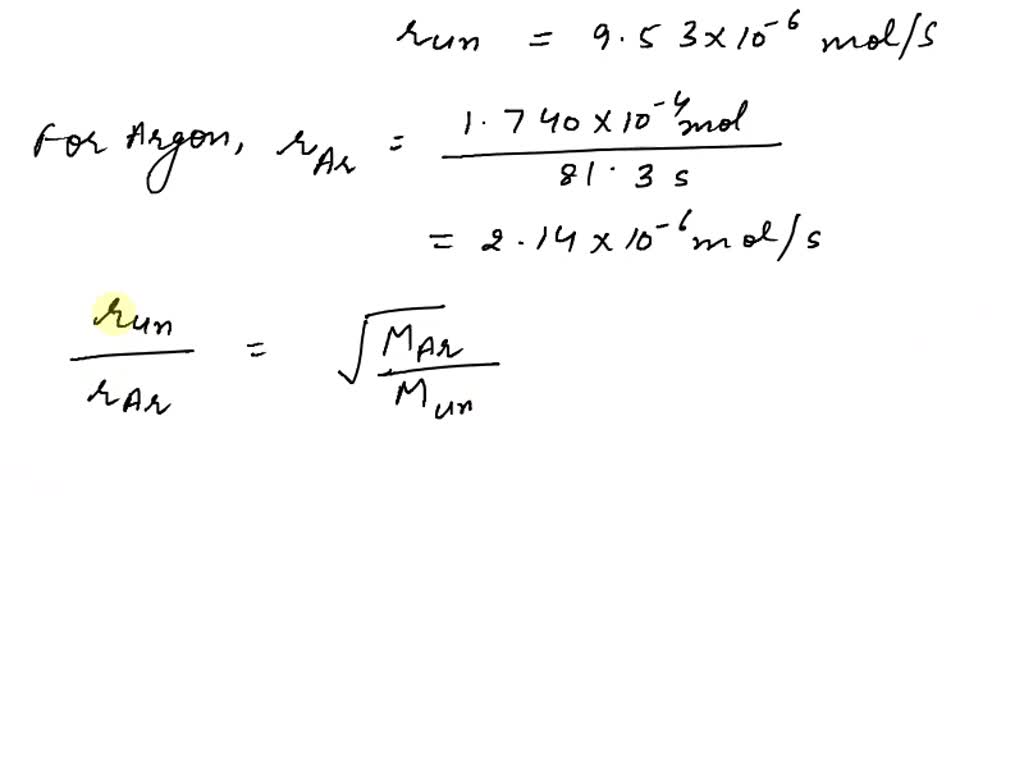 run = 9.53×10⁻⁶ mol/s
For Argon, rAr = 1.740×10⁻⁴ mol
81.3 s
= 2.14×10⁻⁶ mol/s
run = √MAr
rAr Mun